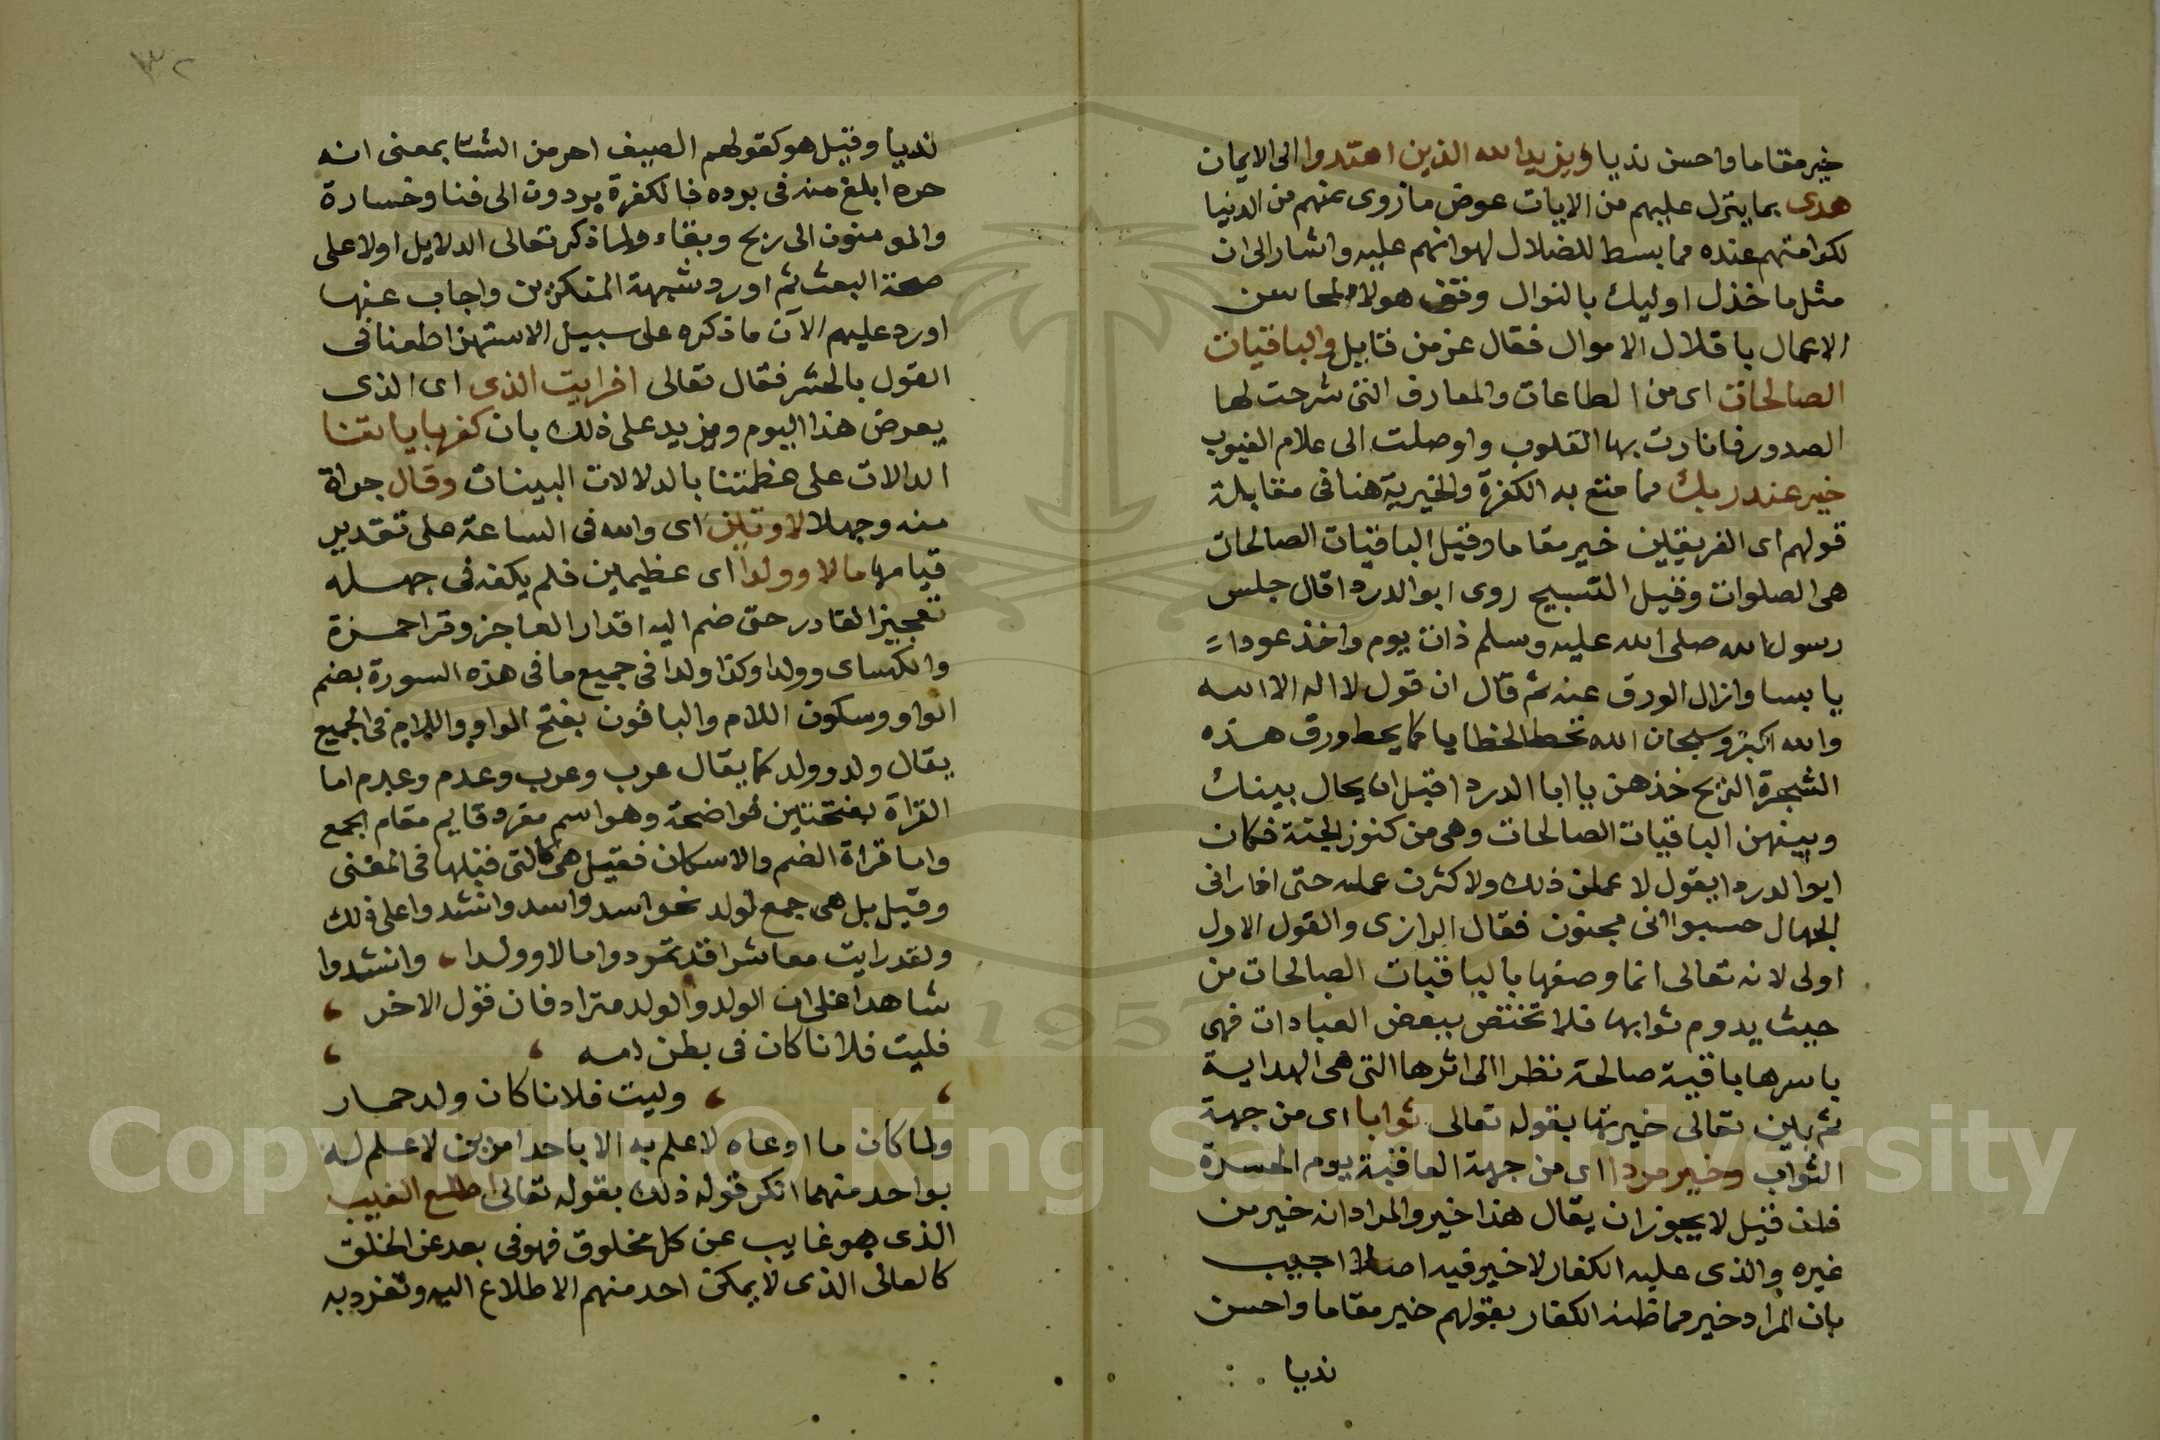 خير مقاما واحسن نديا ويزيد الله الذين اهتدوا الى الايمان
هدى بما ينزل عليهم من الايات عوض ما زوى عنهم من الدنيا
لكرامتهم عنده مما بسط للضلال لهوانهم عليه واشار الى ان
مثل ما خذل اوليك بالنوال وفق هولا لمحاسن
الاعمال باقلال الاموال فقال عز من قايل والباقيات
الصالحات اى من الطاعات والمعارف التى شرحت لها
الصدور فانارت بها القلوب واوصلت الى علام الغيوب
خير عند ربك مما متع به الكفرة والخيرية هنا فى مقابلة
قولهم اى الفريقين خير مقاما وقيل الباقيات الصالحات
هى الصلوات وقيل التسبيح روى ابو الدردا قال جلس
رسول الله صلى الله عليه وسلم ذات يوم واخذ عودا
يابسا وازال الورق عنه ثم قال ان قول لا اله الا الله
والله اكبر وسبحان الله تحط الخطايا كما يحط ورق هذه
الشجرة الريح خذهن يا ابا الدردا قبل ان يحال بينك
وبينهن الباقيات الصالحات وهى من كنوز الجنة فكان
ابو الدردا يقول لا عملن ذلك ولا كثرن عمله حتى اذا رانى
الجهال حسبوا انى مجنون فقال الرازى والقول الاول
اولى لانه تعالى انما وصفها بالباقيات الصالحات من
حيث يدوم ثوابها فلا تختص ببعض العبادات فهى
باسرها باقية صالحة نظرا الى اثرها التى هى الهداية
ثم بين تعالى خيرتها بقوله تعالى ثوابا اى من جهة
الثواب وخير مردا اى من جهة العاقبة يوم الحسرة
فان قيل لا يجوز ان يقال هذا خير والمراد انه خير من
غيره والذى عليه الكفار لا خير فيه اصلا اجيب
بان المراد خير مما ظنه الكفار بقولهم خير مقاما واحسن
نديا
٣٢
نديا وقيل هو كقولهم الصيف احر من الشتا بمعنى انه
حره ابلغ منه فى برده فالكفرة يردون الى فنا وخسارة
والمومنون الى ربح وبقاء ولما ذكر تعالى الدلايل اولا على
صحة البعث ثم اورد شبهة المنكرين واجاب عنها
اورد عليهم الآن ما ذكره على سبيل الاستهزا طعنا فى
القول بالحشر فقال تعالى افرايت الذى اى الذى
يعرض هذا اليوم ويزيد على ذلك بان كفر باياتنا
الدالات على عظمتنا بالدلالات البينات وقال جراة
منه وجهلا لاوتين اى والله فى الساعة على تقدير
قيامها مالا وولدا اى عظيمين فلم يكفه فى جهله
تعجيز القادر حتى ضم اليه اقدار العاجز وقرا حمزة
والكساى وولدا وكذا ولدا فى جميع ما فى هذه السورة بضم
الواو وسكون اللام والباقون بفتح الواو واللام فى الجميع
يقال ولد وولد كما يقال عرب وعرب وعدم وعدم اما
القراة بفتحتين فواضحة وهو اسم مفرد قايم مقام الجمع
واما قراة الضم والاسكان فقيل هى كالتى قبلها فى المعنى
وقيل بل هى جمع لولد نحو اسد واسد وانشدوا على ذلك
ولقد رايت معاشرا قد تمردوا مالا وولدا وانشدوا
شاهدا على ان الولد والولد مترادفان قول الاخر
فليت فلانا كان فى بطن امه
وليت فلانا كان ولد حمار
ولما كان ما ادعاه لا علم به الا باحد امرين لا علم له
بواحد منهما انكر قوله ذلك بقوله تعالى اطلع الغيب
الذى هو غايب عن كل مخلوق فهو فى بعد عن الخلق
كالعالى الذى لا يمكن احد منهم الاطلاع اليه وتفرد به
Copyright © King Saud University
1957